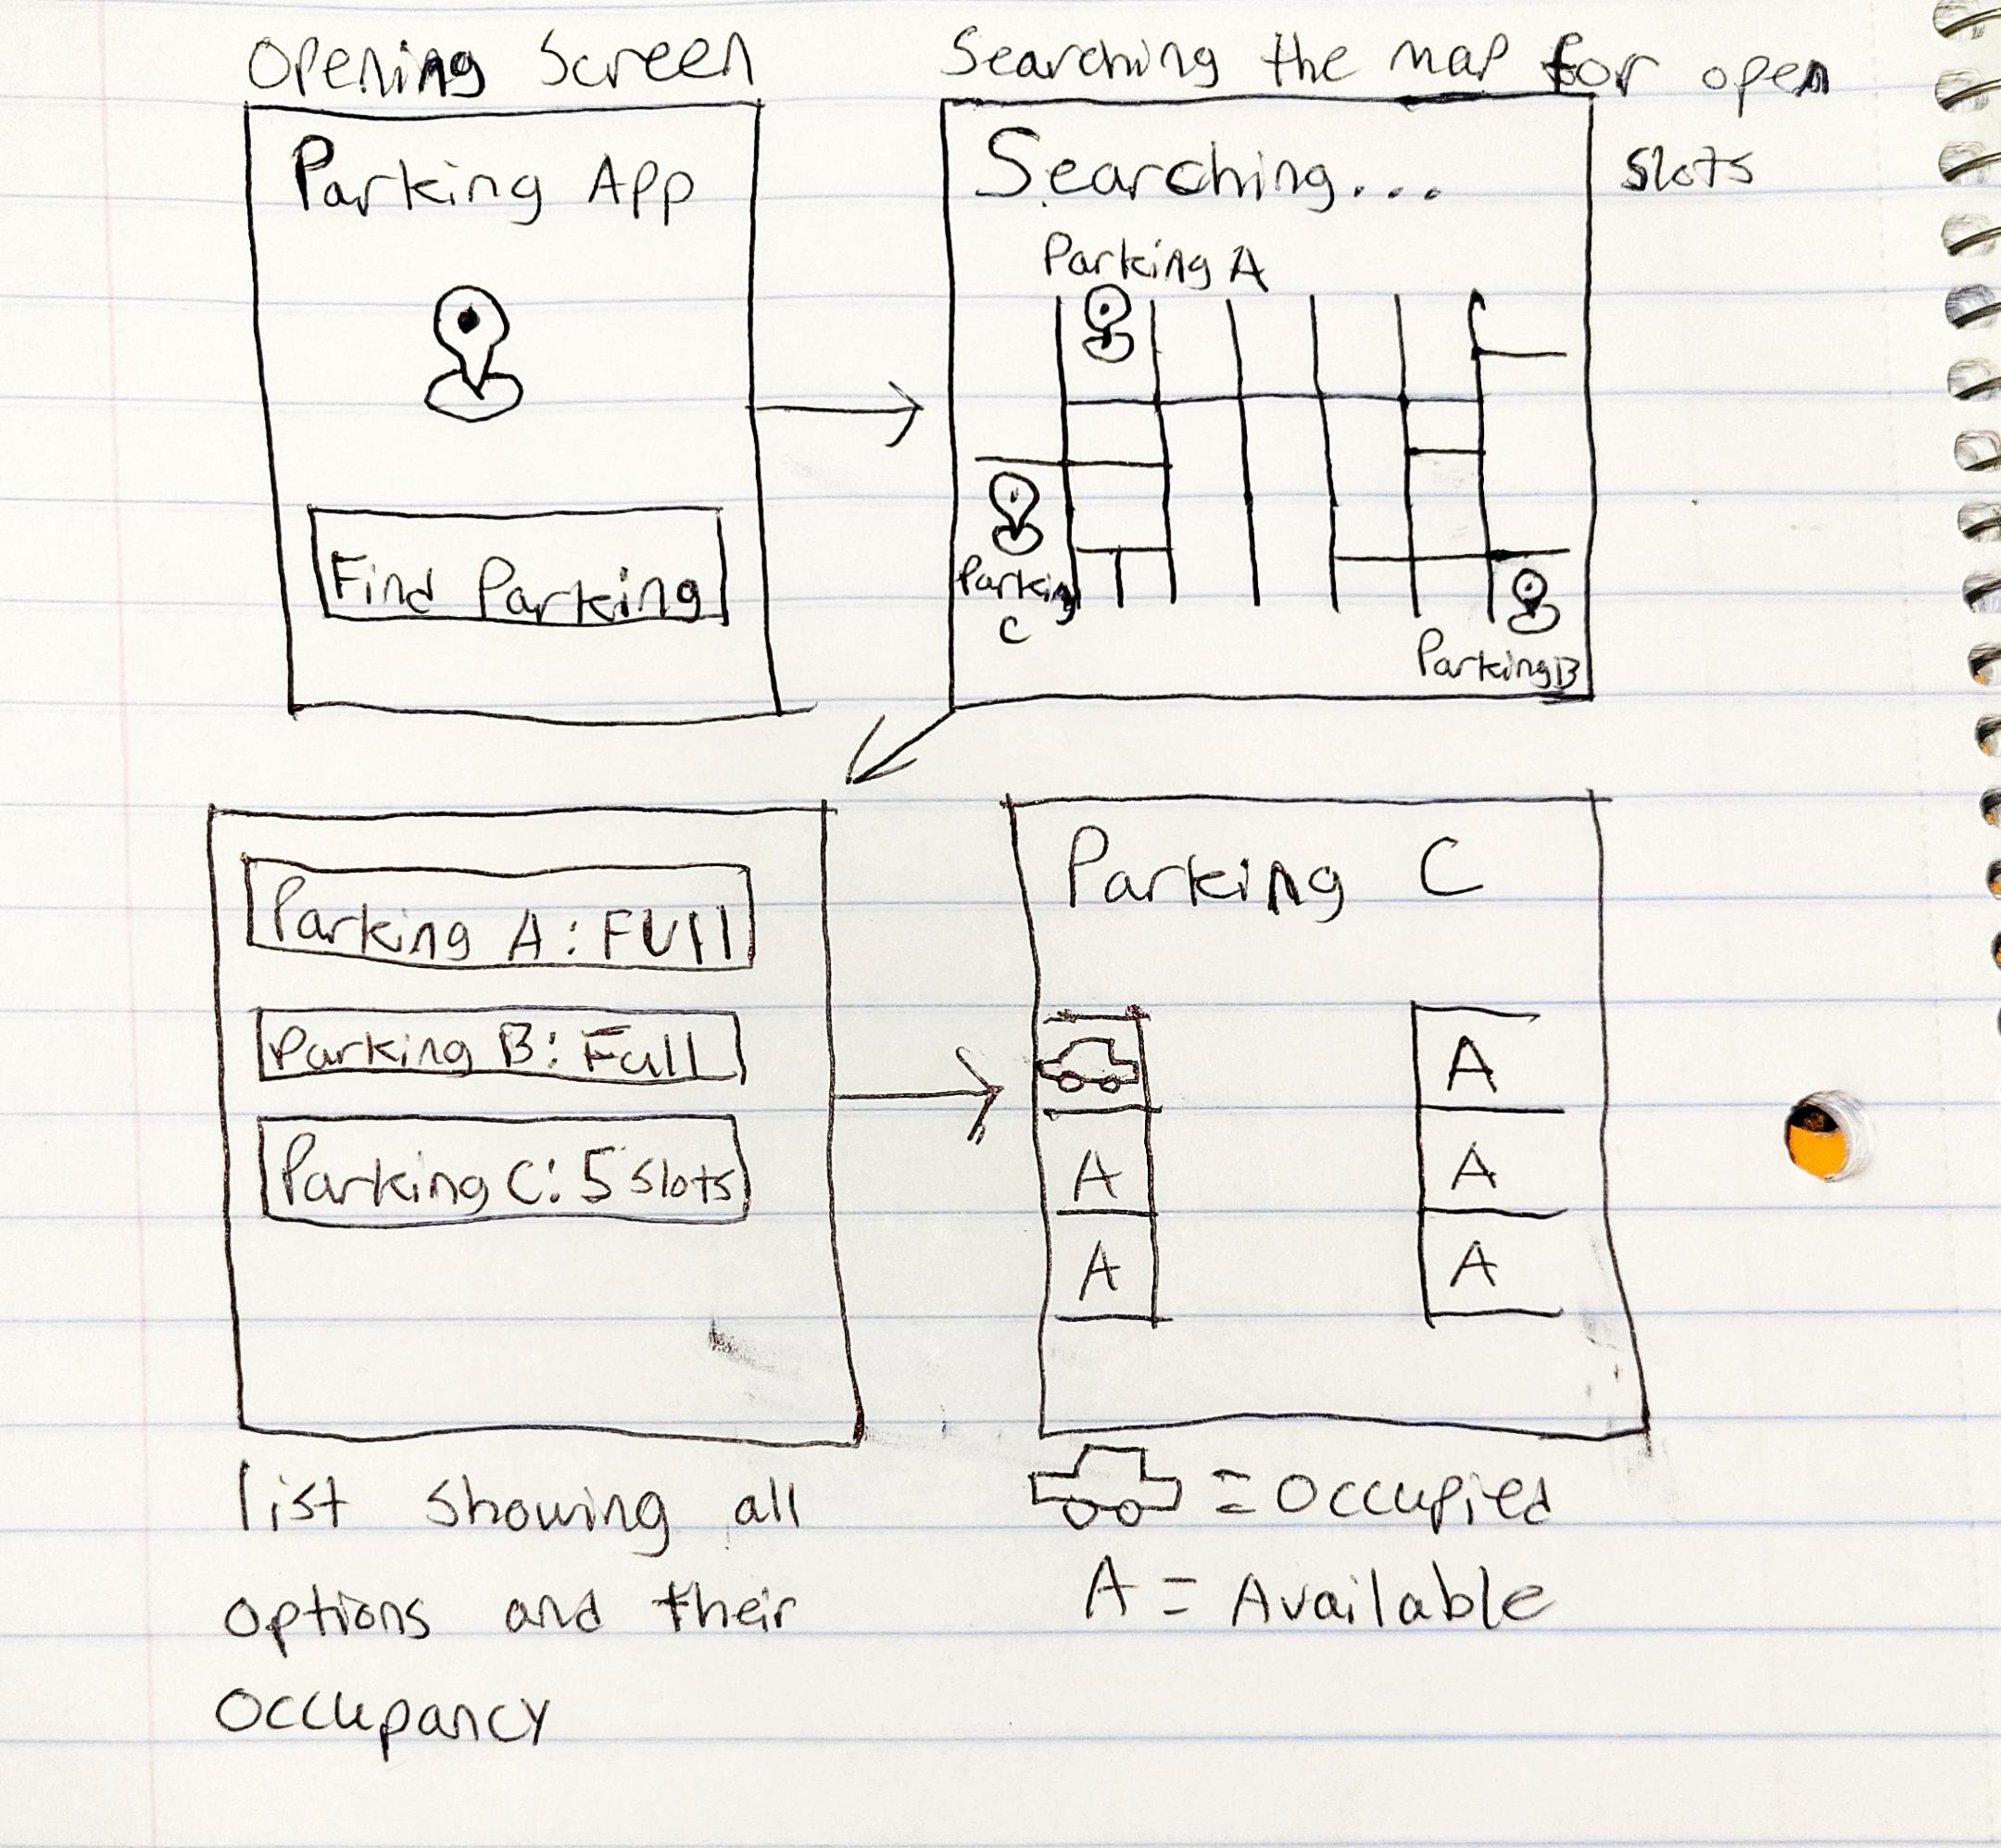 Opening Screen
Parking App
Find Parking
Searching the map for open
slots
Searching...
Parking A
Parking
C
Parking B
Parking A: Full
Parking B: Full
Parking C: 5 slots
list showing all
options and their
occupancy
Parking C
A
A A
A A
= Occupied
A = Available